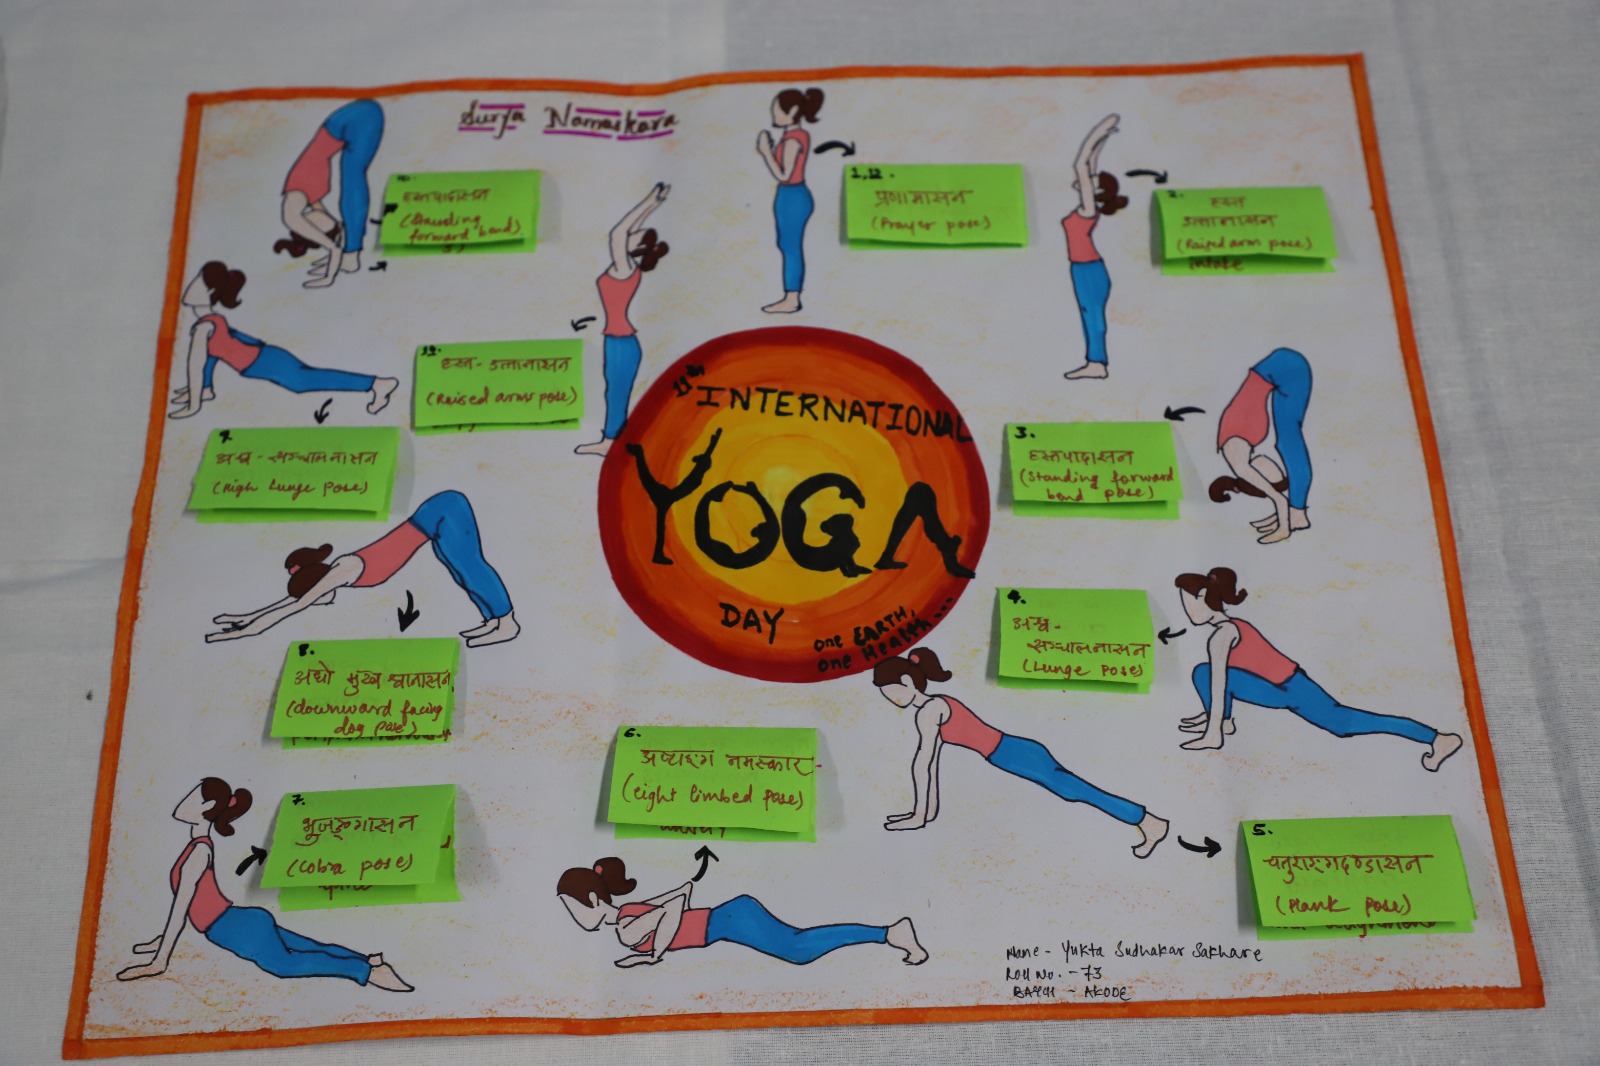 Surya Namaskara
1,12.
प्रणामासन
(Prayer pose)
2.
हस्त
उत्तानासन
(Raised arm pose)
intake
3.
हस्तपादासन
(Standing forward
bend pose)
4.
अश्व -
सञ्चालनासन
(Lunge pose)
5.
चतुरङ्गदण्डासन
(Plank pose)
6.
अष्टाङ्ग नमस्कार
(eight limbed pose)
7.
भुजङ्गासन
(Cobra pose)
8.
अधो मुख श्वानासन
(downward facing
dog pose)
9.
अश्व - सञ्चालनासन
(High Lunge pose)
10.
हस्तपादासन
(Standing
forward bend)
11.
हस्त - उत्तानासन
(Raised arms pose)
11th INTERNATIONAL
YOGA
DAY
one EARTH,
one Health...
Name - Yukta Sudhakar Sakhare
Roll No. - 73
Batch - AKODE